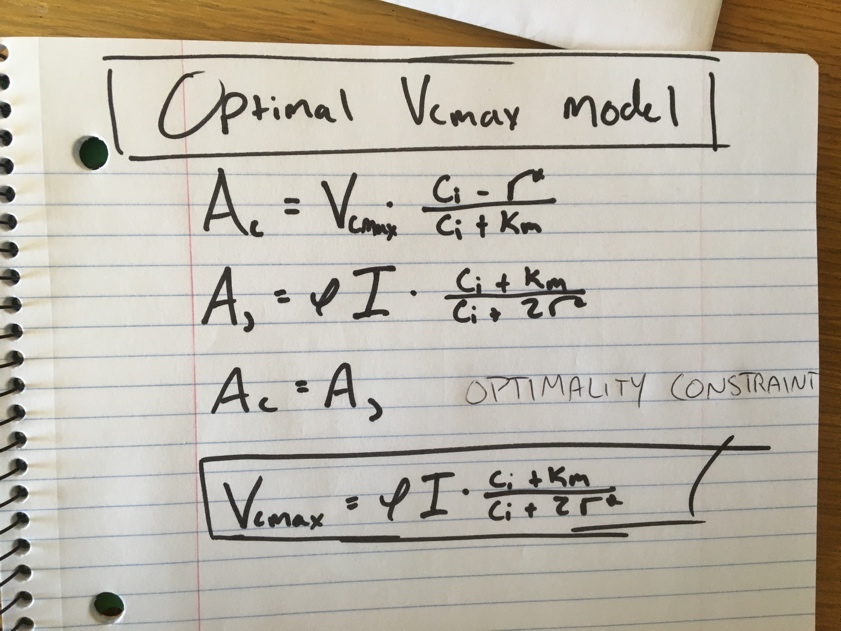 Optimal Vcmax model
Ac = Vcmax · (Ci - Γ*) / (Ci + Km)
AJ = φ I · (Ci + Km) / (Ci + 2Γ*)
Ac = AJ OPTIMALITY CONSTRAINT
Vcmax = φ I · (Ci + Km) / (Ci + 2Γ*)